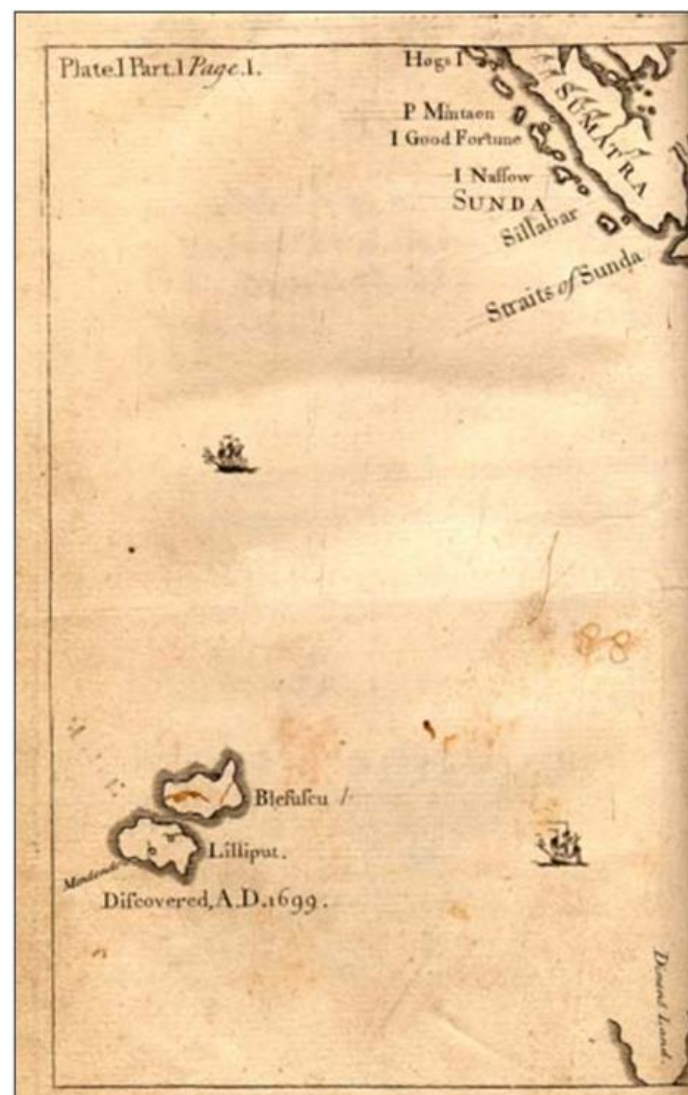 Plate.I Part.I Page.I.
Hogs I
P Mintaon
I Good Fortune
I Naſſow
SUNDA
SUMATRA
Sillabar
Straits of Sunda
88
Blefuſcu
Lilliput.
Mendendo
Diſcovered, A.D. 1699.
Dimens Land.